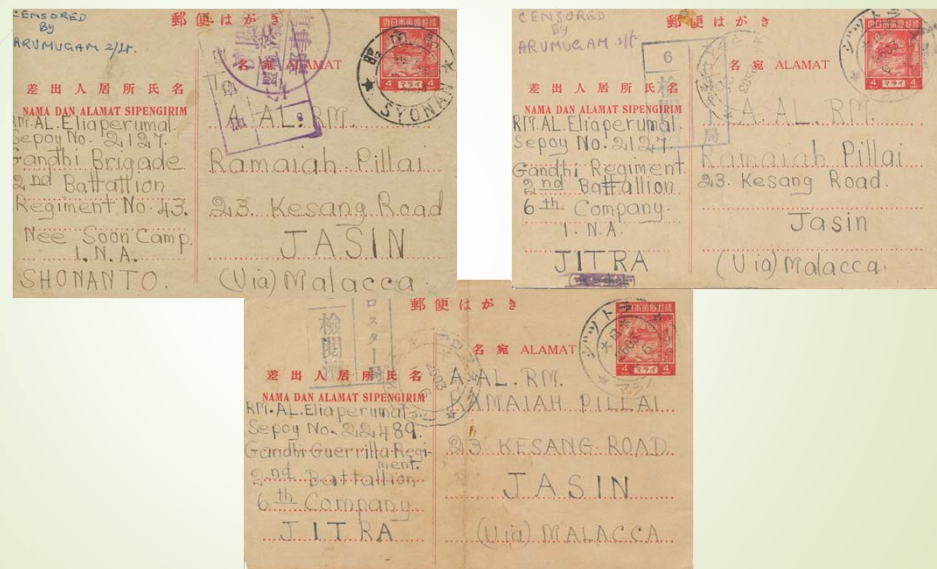 CENSORED
By
ARUMUGAM 2/Lt.
郵便はがき
名宛 ALAMAT
差出人居所氏名
NAMA DAN ALAMAT SIPENGIRIM
RM.AL.Eliaperumal.
Sepoy No. 2127.
Gandhi Brigade
2nd Battallion
Regiment No. 43.
Nee Soon Camp.
I.N.A.
SHONANTO.
A. AL. RM.
Ramaiah Pillai
23. Kesang Road
JASIN
(Via) Malacca.
4 マライ 4
SYONAN
CENSORED
By
ARUMUGAM 2/Lt.
郵便はがき
名宛 ALAMAT
差出人居所氏名
NAMA DAN ALAMAT SIPENGIRIM
RM.AL.Eliaperumal
Sepoy No. 2127.
Gandhi Regiment
2nd Battallion
6th Company.
I.N.A.
JITRA
A. AL. RM.
Ramaiah Pillai
23. Kesang Road.
Jasin
(Via) Malacca.
4 マライ 4
6
検
局
郵便はがき
名宛 ALAMAT
差出人居所氏名
NAMA DAN ALAMAT SIPENGIRIM
RM.AL.Eliaperumal
Sepoy No. 22489.
Gandhi Guerrilla Regi-
ment.
2nd Battallion
6th Company
JITRA
A. AL. RM.
RAMAIAH PILLAI
23. KESANG ROAD.
JASIN
(Via) MALACCA.
4 マライ 4
検閲済
2603